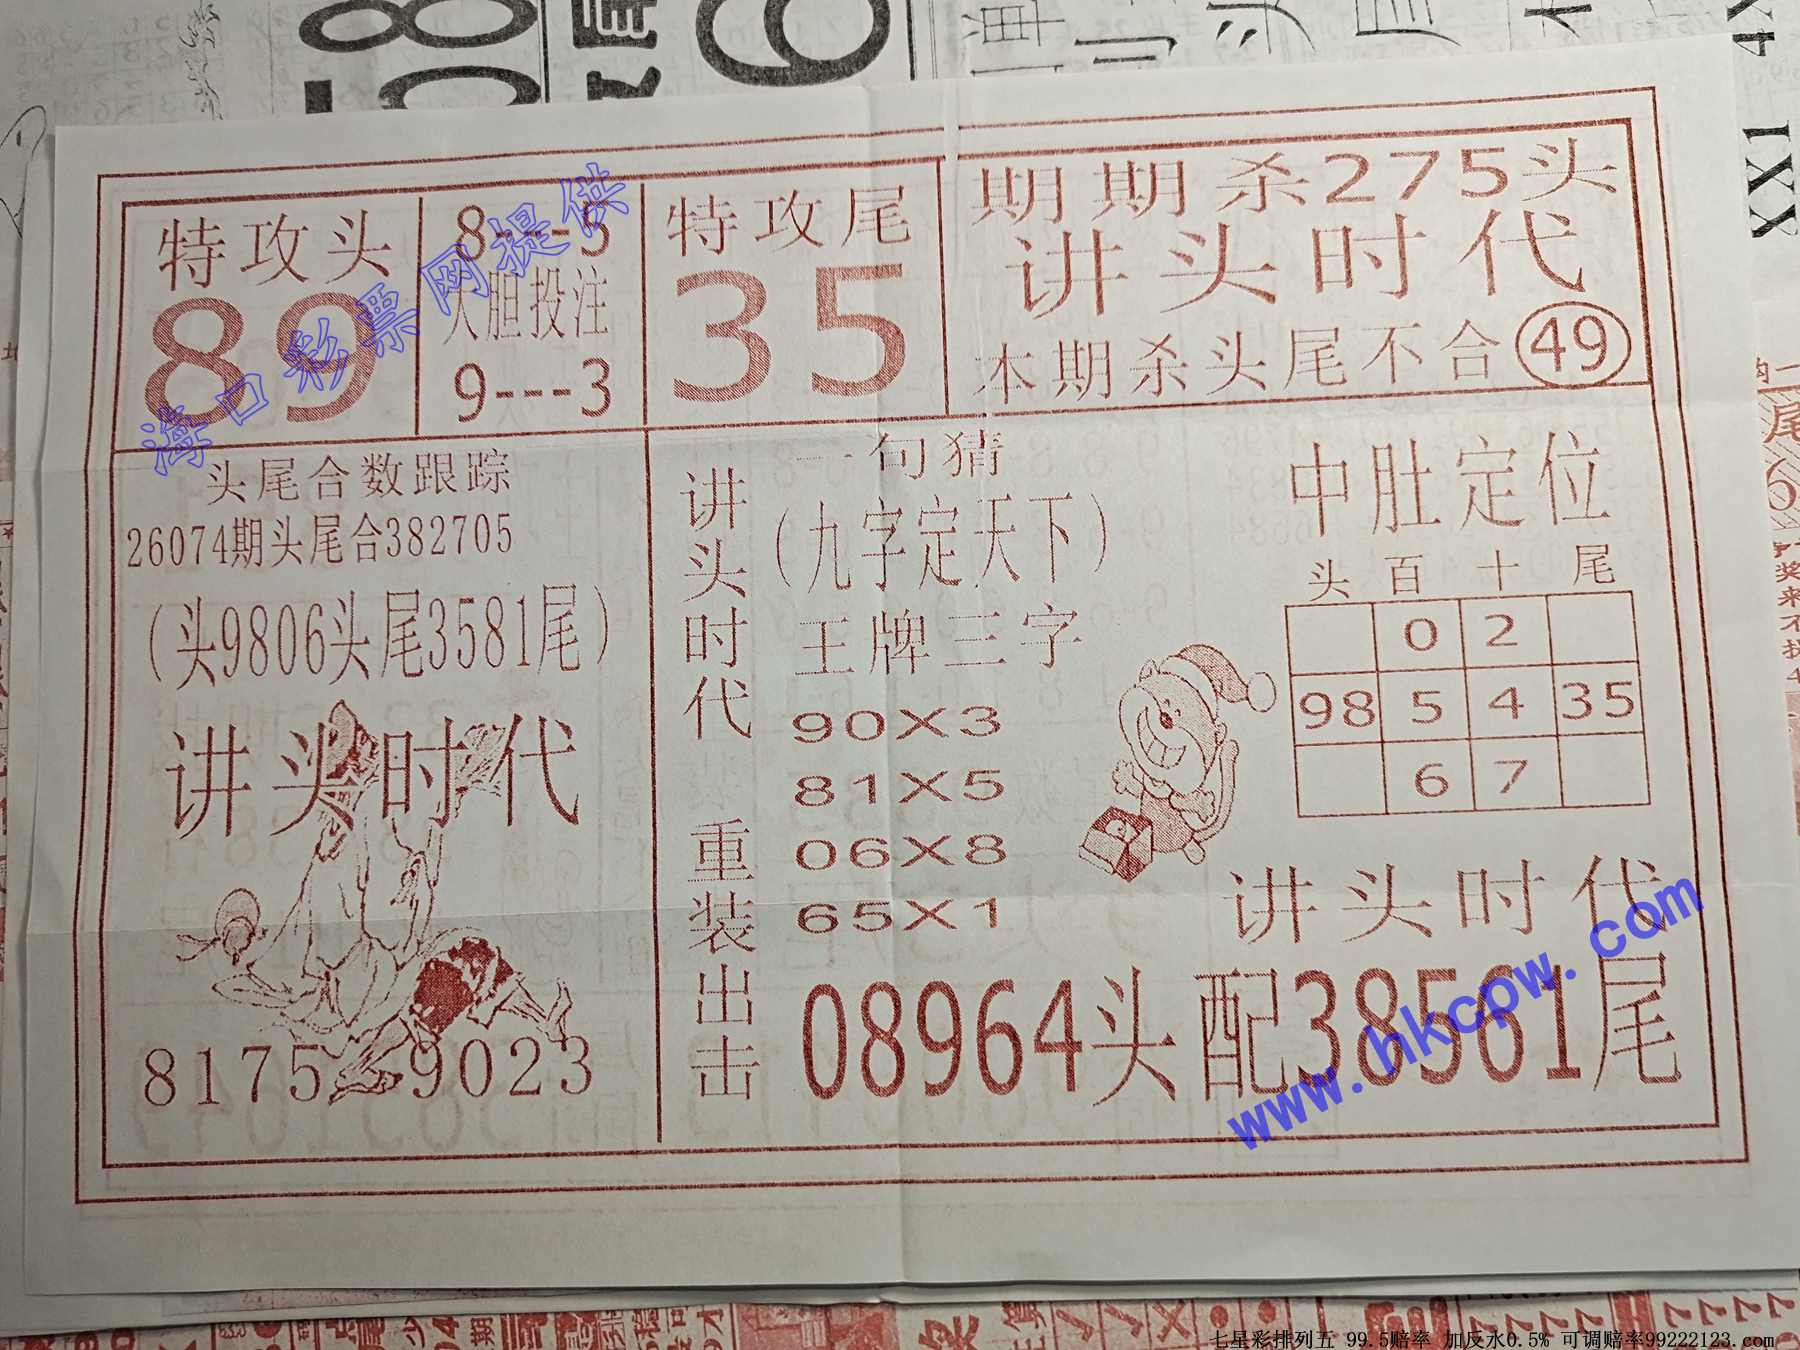 特攻头
89
8---5
大胆投注
9---3
特攻尾
35
期期杀275头
讲头时代
本期杀头尾不合49
头尾合数跟踪
26074期头尾合382705
(头9806头尾3581尾)
讲头时代
8175 9023
讲头时代
重装出击
一句猜
(九字定天下)
王牌三字
90X3
81X5
06X8
65X1
中肚定位
头 百 十 尾
0 2
98 5 4 35
6 7
讲头时代
08964头配38561尾
海口彩票网提供
www.hkcpw.com
七星彩排列五 99.5赔率 加反水0.5% 可调赔率99222123.com